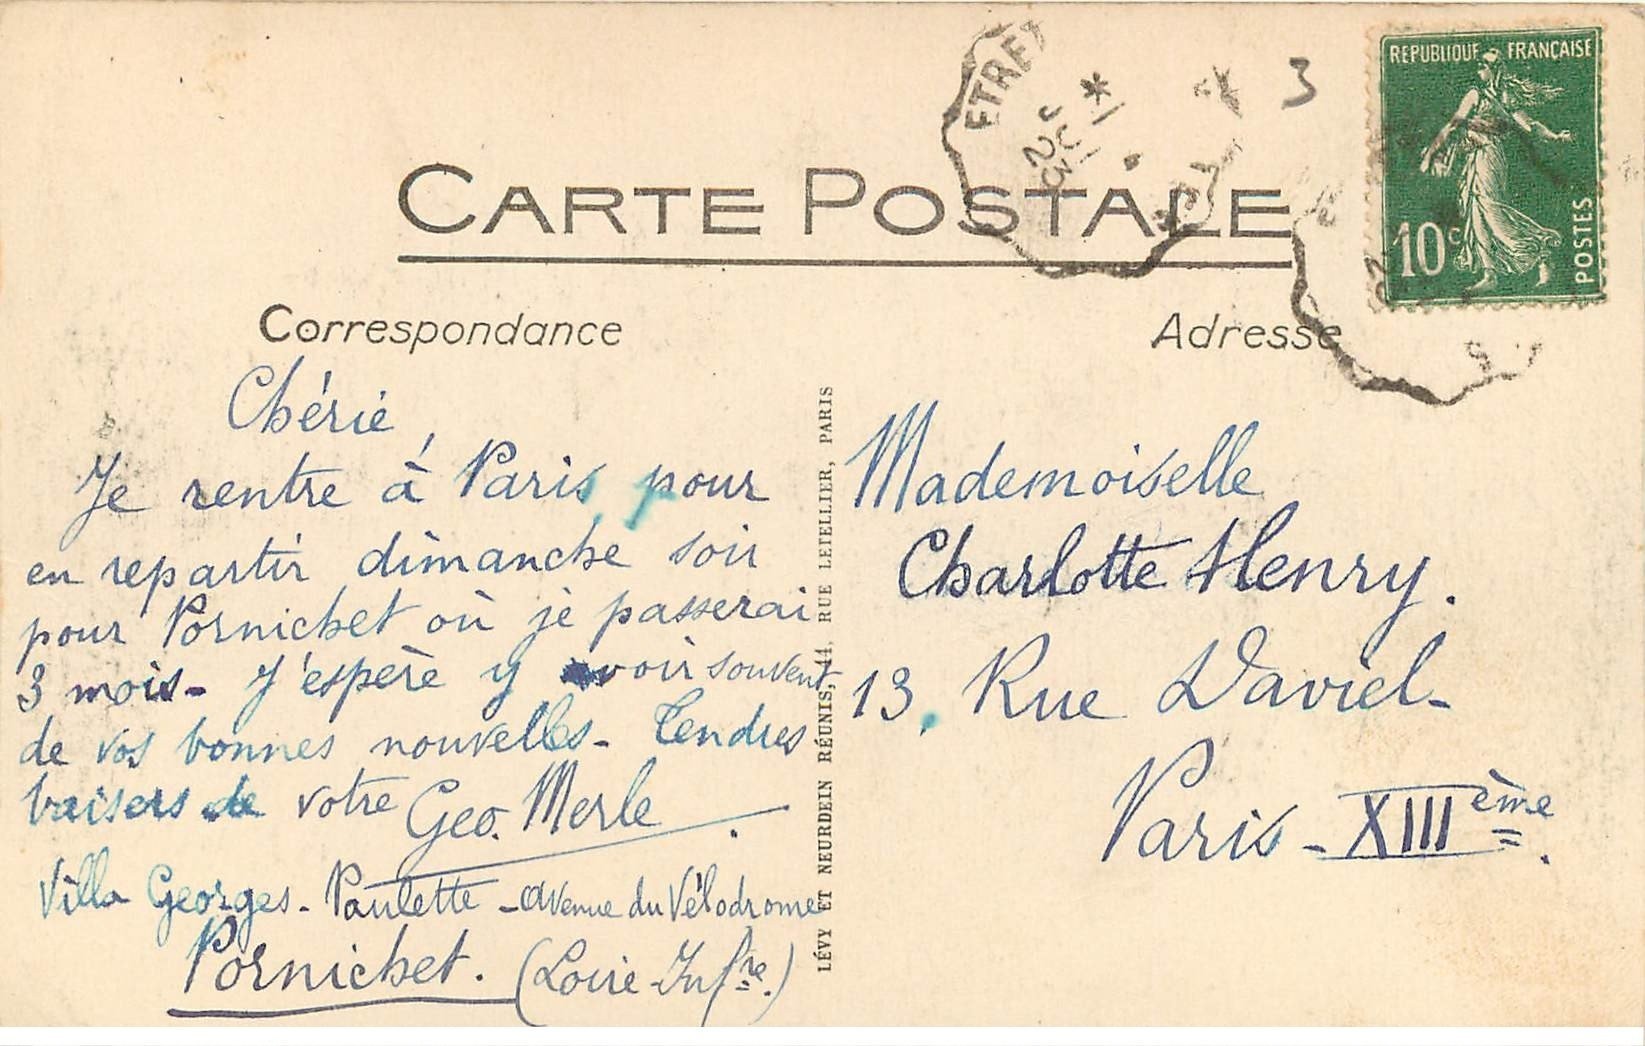 CARTE POSTALE
Correspondance
Chérie,
Je rentre à Paris, pour
en repartir dimanche soir
pour Pornichet où je passerai
3 mois - J'espère y avoir souvent
de vos bonnes nouvelles - Tendres
baisers de votre Geo. Merle.
Villa Georges - Paulette - avenue du Vélodrome
Pornichet. (Loire-Infre.)
LÉVY ET NEURDEIN RÉUNIS, 44, RUE LETELLIER, PARIS
Adresse
Mademoiselle
Charlotte Henry.
13, Rue Daviel -
Paris - XIIIème.
3
REPUBLIQUE FRANÇAISE
10c
POSTES